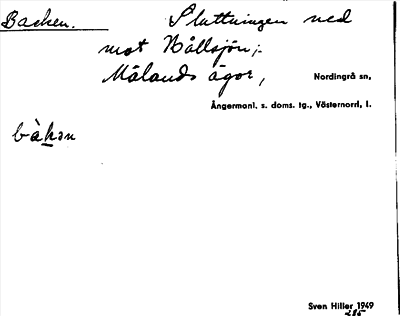 Backen. Sluttningen ned
mot Vållsjön;
Mälands ägor, Nordingrå sn,
Ångermanl. s. doms. tg., Västernorrl. l.
bàkən
Sven Hiller 1949